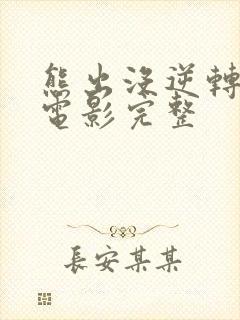 熊出没逆轉
電影完整
長安某某